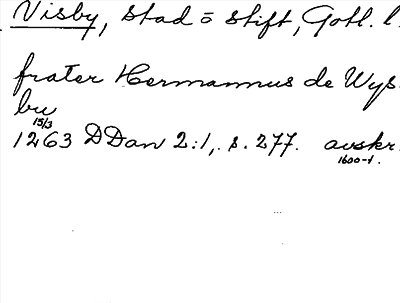 Visby, stad o stift, Gotl. l.
frater Hermannus de Wys-
bu
15/3
1263 DDan 2:1, s. 277. avskr.
1600-t.